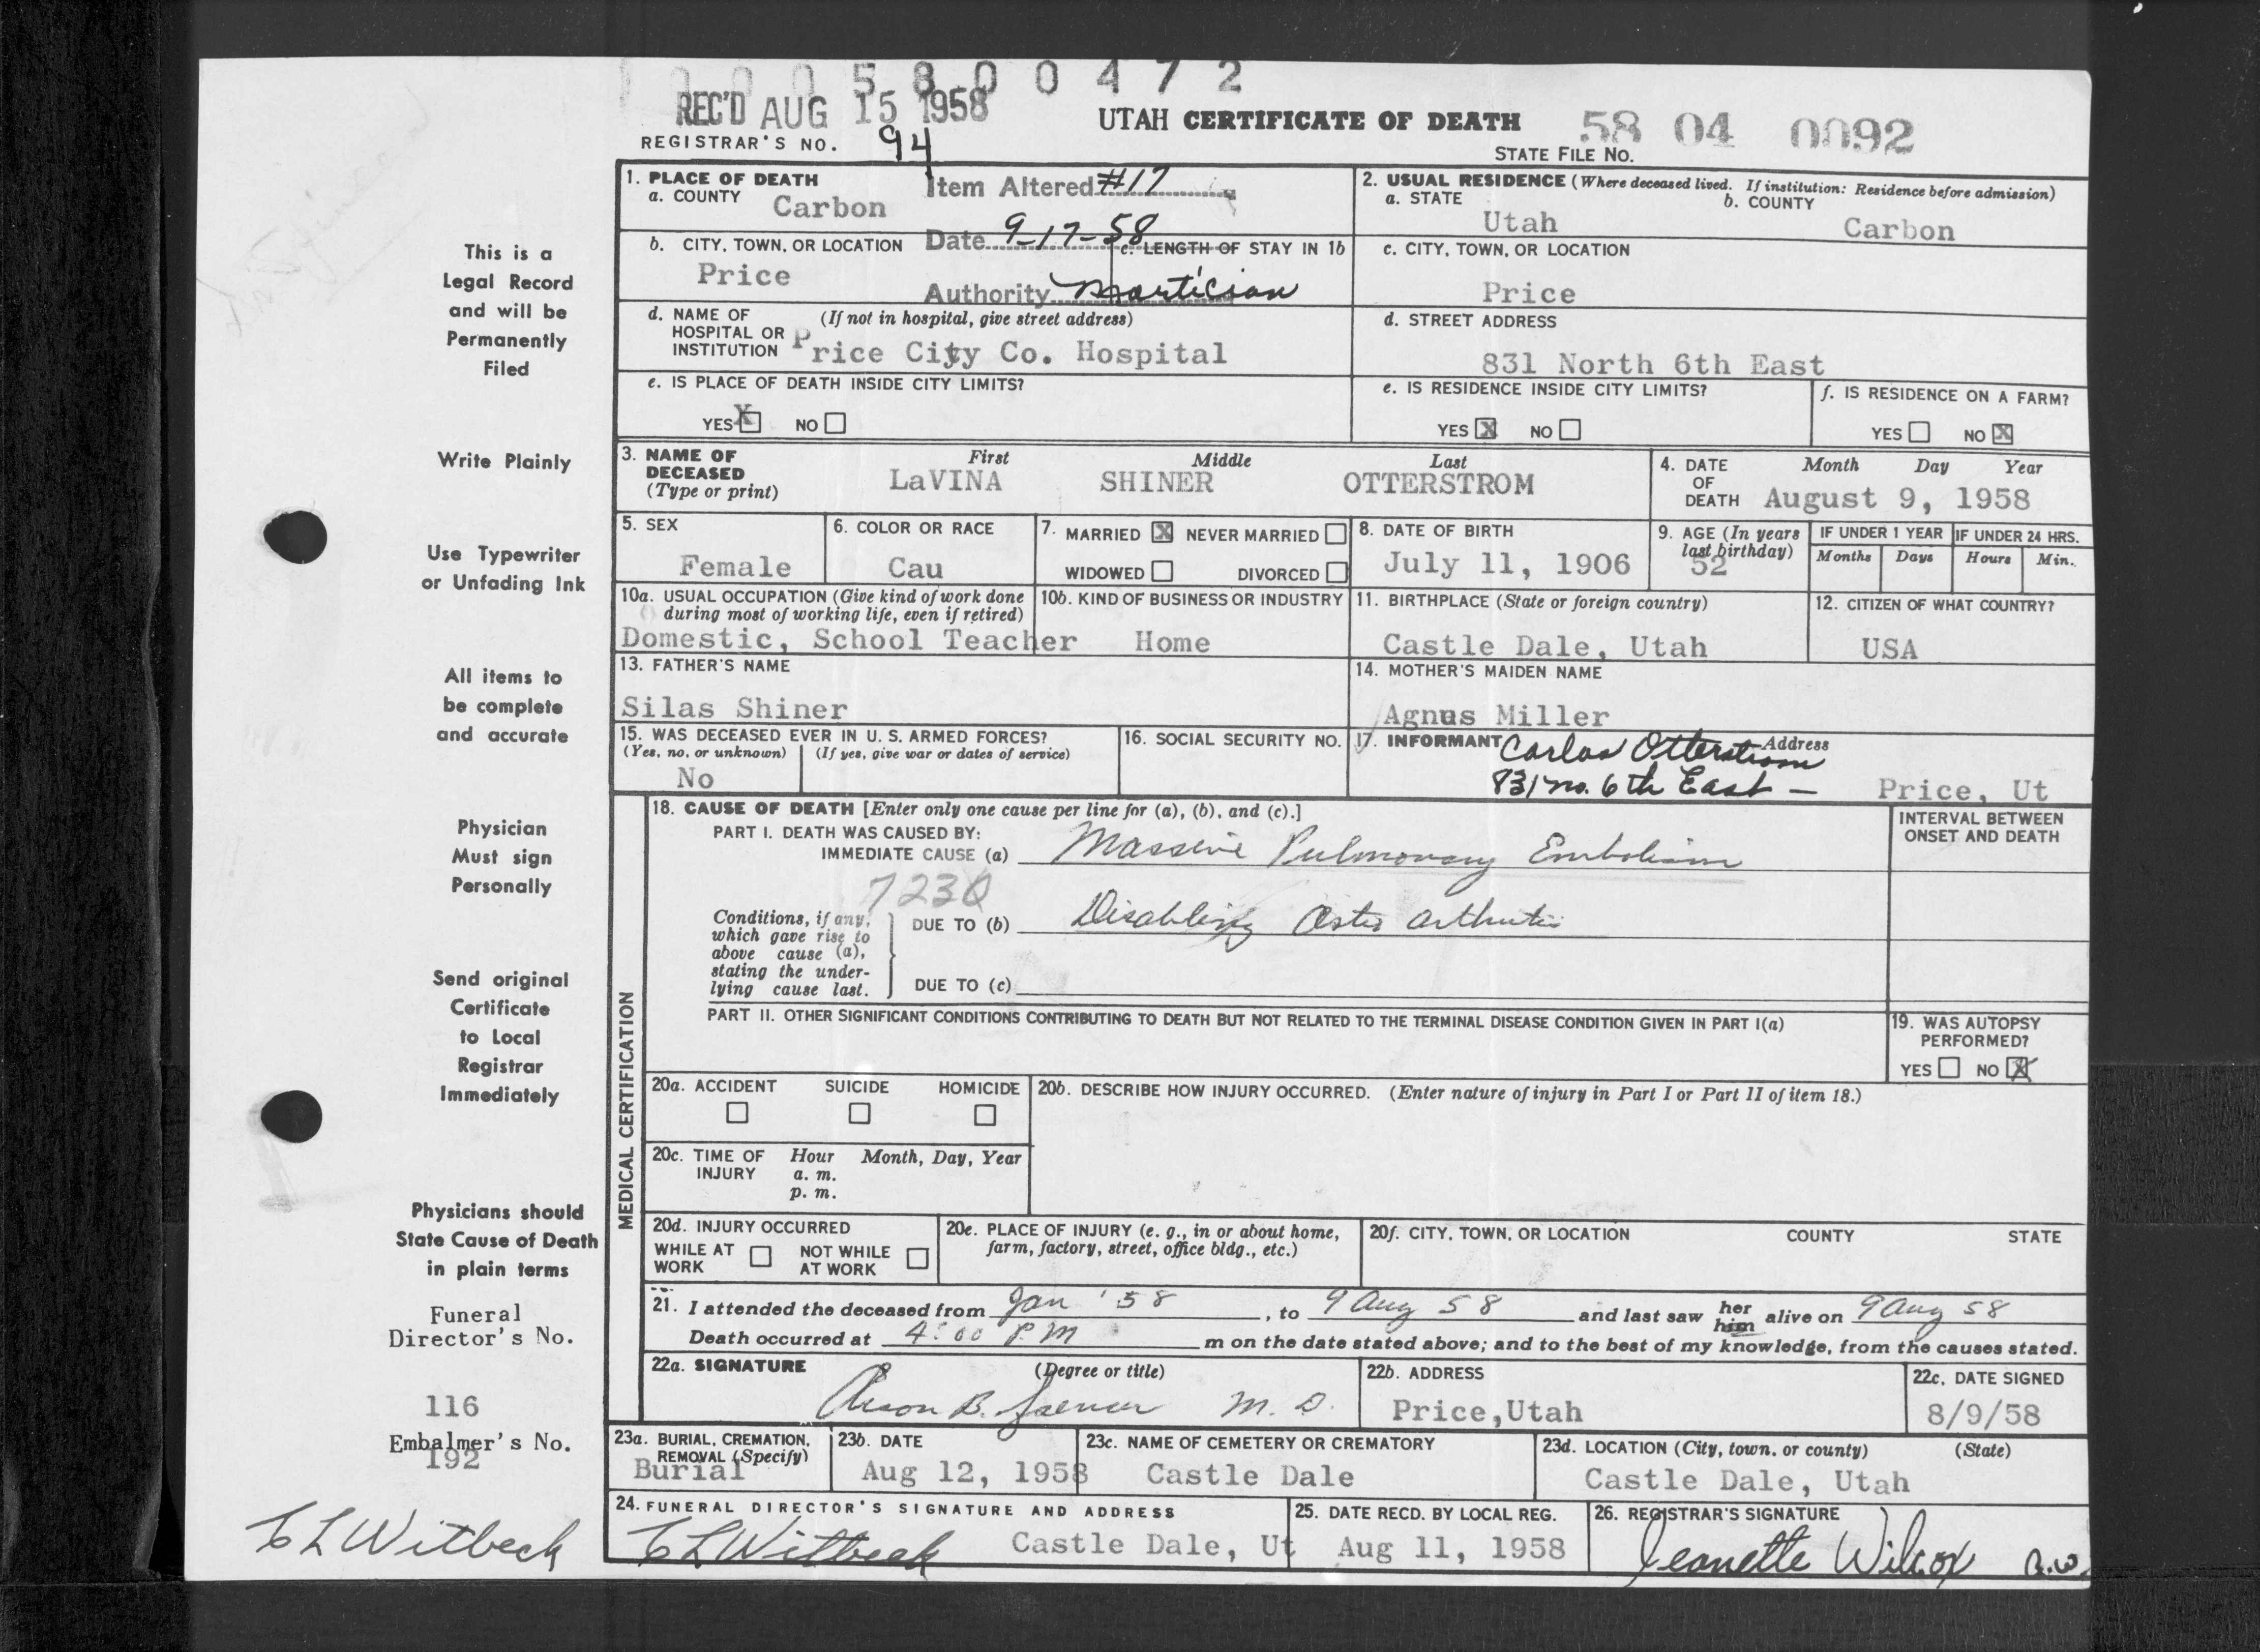 0 0 0 5 8 0 0 4 7 2
REC'D AUG 15 1958
UTAH CERTIFICATE OF DEATH
58 04 0092
REGISTRAR'S NO. 94
STATE FILE NO.
1. PLACE OF DEATH
a. COUNTY Carbon
Item Altered #17
Date 9-17-58
Authority Mortician
2. USUAL RESIDENCE (Where deceased lived. If institution: Residence before admission)
a. STATE Utah
b. COUNTY Carbon
b. CITY, TOWN, OR LOCATION Price
c. LENGTH OF STAY IN 1b
c. CITY, TOWN, OR LOCATION
Price
d. NAME OF HOSPITAL OR INSTITUTION (If not in hospital, give street address)
Price City Co. Hospital
d. STREET ADDRESS
831 North 6th East
e. IS PLACE OF DEATH INSIDE CITY LIMITS?
YES X NO
e. IS RESIDENCE INSIDE CITY LIMITS?
YES X NO
f. IS RESIDENCE ON A FARM?
YES NO X
3. NAME OF DECEASED (Type or print)
First Middle Last
LaVINA SHINER OTTERSTROM
4. DATE OF DEATH
Month Day Year
August 9, 1958
5. SEX
Female
6. COLOR OR RACE
Cau
7. MARRIED X NEVER MARRIED
WIDOWED DIVORCED
8. DATE OF BIRTH
July 11, 1906
9. AGE (In years last birthday)
52
IF UNDER 1 YEAR
Months Days
IF UNDER 24 HRS.
Hours Min.
10a. USUAL OCCUPATION (Give kind of work done during most of working life, even if retired)
Domestic, School Teacher
10b. KIND OF BUSINESS OR INDUSTRY
Home
11. BIRTHPLACE (State or foreign country)
Castle Dale, Utah
12. CITIZEN OF WHAT COUNTRY?
USA
13. FATHER'S NAME
Silas Shiner
14. MOTHER'S MAIDEN NAME
Agnus Miller
15. WAS DECEASED EVER IN U. S. ARMED FORCES?
(Yes, no, or unknown) (If yes, give war or dates of service)
No
16. SOCIAL SECURITY NO.
17. INFORMANT Carlos Otterstrom Address
831 no. 6th East - Price, Ut
MEDICAL CERTIFICATION
18. CAUSE OF DEATH [Enter only one cause per line for (a), (b), and (c).]
PART I. DEATH WAS CAUSED BY:
IMMEDIATE CAUSE (a) Massive Pulmonary Embolism
INTERVAL BETWEEN ONSET AND DEATH
7230
Conditions, if any, which gave rise to above cause (a), stating the underlying cause last.
DUE TO (b) Disabling Osteo arthritis
DUE TO (c)
PART II. OTHER SIGNIFICANT CONDITIONS CONTRIBUTING TO DEATH BUT NOT RELATED TO THE TERMINAL DISEASE CONDITION GIVEN IN PART I(a)
19. WAS AUTOPSY PERFORMED?
YES NO X
20a. ACCIDENT SUICIDE HOMICIDE
20b. DESCRIBE HOW INJURY OCCURRED. (Enter nature of injury in Part I or Part II of item 18.)
20c. TIME OF INJURY
Hour Month, Day, Year
a. m.
p. m.
20d. INJURY OCCURRED
WHILE AT WORK NOT WHILE AT WORK
20e. PLACE OF INJURY (e. g., in or about home, farm, factory, street, office bldg., etc.)
20f. CITY, TOWN, OR LOCATION COUNTY STATE
21. I attended the deceased from Jan '58, to 9 Aug 58 and last saw her him alive on 9 Aug 58
Death occurred at 4:00 PM m on the date stated above; and to the best of my knowledge, from the causes stated.
22a. SIGNATURE (Degree or title)
B. M. D.
22b. ADDRESS
Price,Utah
22c. DATE SIGNED
8/9/58
23a. BURIAL, CREMATION, REMOVAL (Specify)
Burial
23b. DATE
Aug 12, 1958
23c. NAME OF CEMETERY OR CREMATORY
Castle Dale
23d. LOCATION (City, town, or county) (State)
Castle Dale, Utah
24. FUNERAL DIRECTOR'S SIGNATURE AND ADDRESS
L Witbeck Castle Dale, Ut
25. DATE RECD. BY LOCAL REG.
Aug 11, 1958
26. REGISTRAR'S SIGNATURE
Jeanette Wilcox
This is a
Legal Record
and will be
Permanently
Filed
Write Plainly
Use Typewriter
or Unfading Ink
All items to
be complete
and accurate
Physician
Must sign
Personally
Send original
Certificate
to Local
Registrar
Immediately
Physicians should
State Cause of Death
in plain terms
Funeral
Director's No.
116
Embalmer's No.
192
L Witbeck